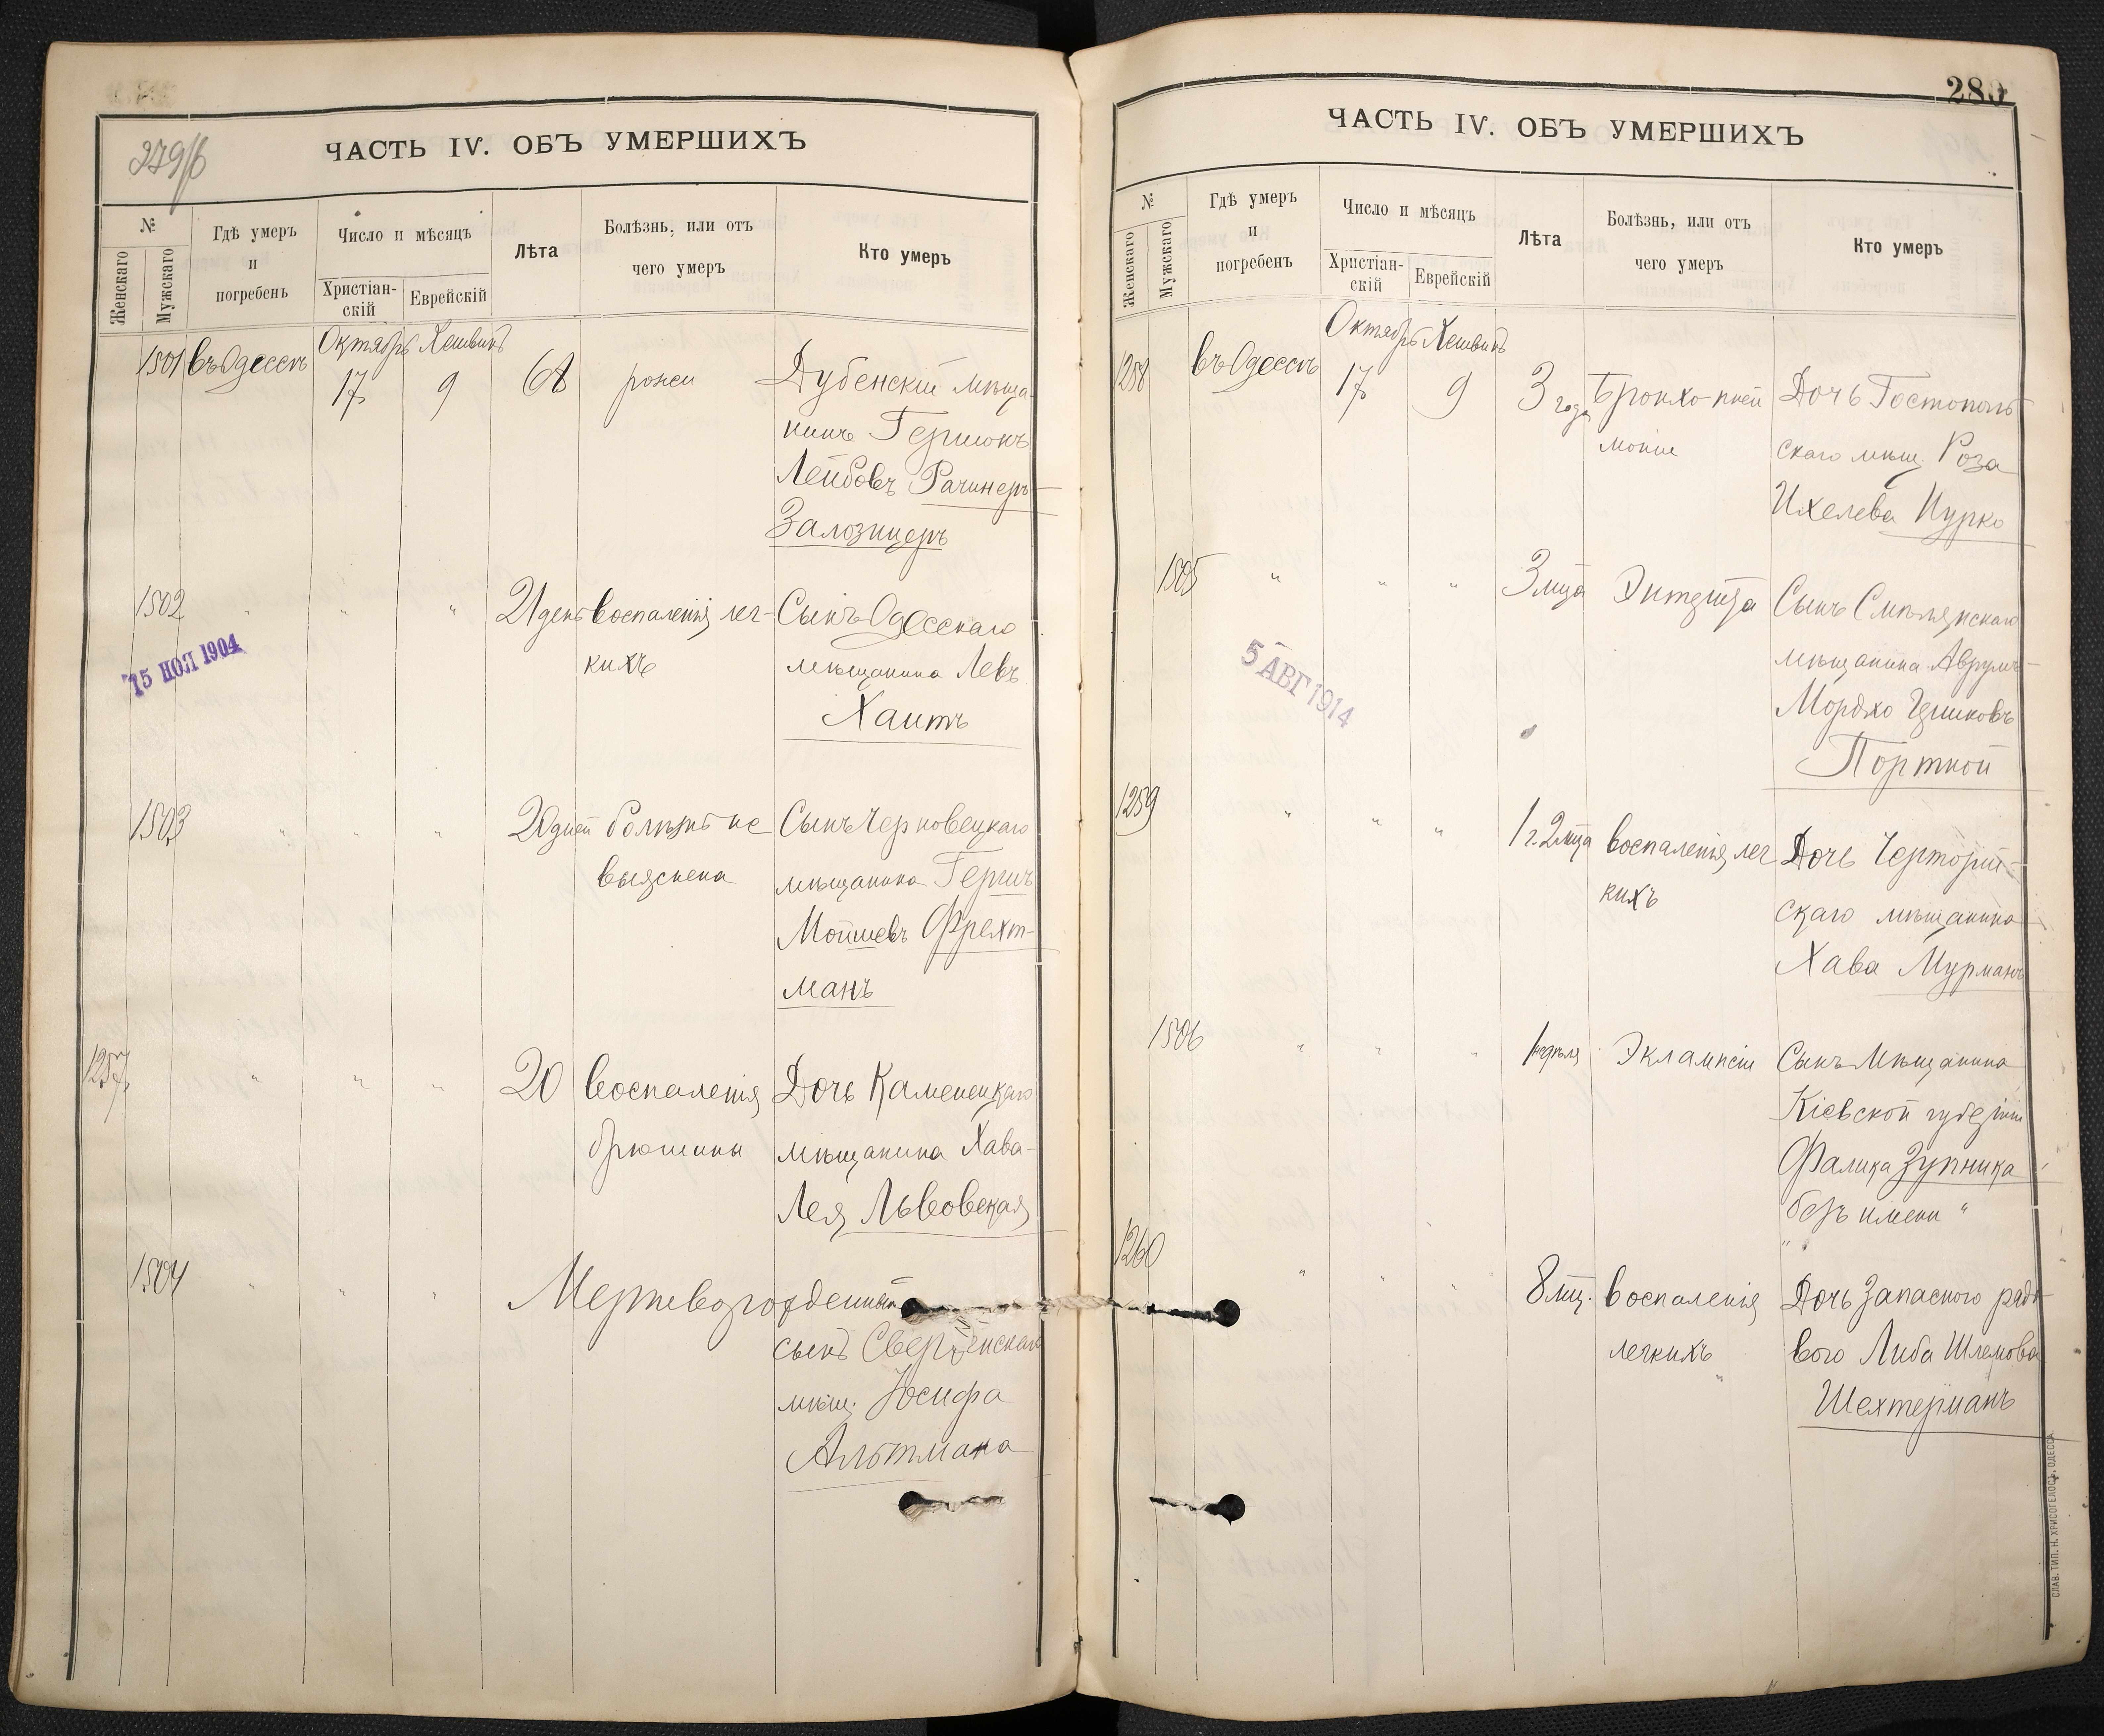 279/б
ЧАСТЬ IV. ОБЪ УМЕРШИХЪ
№
Женскаго
Мужскаго
Гдѣ умеръ
и
погребенъ
Число и мѣсяцъ
Христіан-
скій
Еврейскій
Лѣта
Болѣзнь, или отъ
чего умеръ
Кто умеръ
Октябрь Хешвинъ
1501 въ Одессѣ 17 9 68 рожи Дубенскій мѣща-
нинъ Гершонъ
Лейбовъ Рачинеръ-
Залозицеръ
1502 " " " 21 день воспаленія лег- Сынъ Одесскаго
кихъ мѣщанина Левъ
Хаитъ
15 ІЮЛ 1904
1503 " " " 20 дней болѣзнь не Сынъ Черновецкаго
выяснена мѣщанина Гершъ
Мойшевъ Фрехт-
манъ
1257 " " " 20 воспаленія Дочь Каменецкаго
брюшины мѣщанина Хава-
Лея Львовская
1504 " " " Мертворожденный
сынъ
мѣщ. Іосифа
Альтмана
280
ЧАСТЬ IV. ОБЪ УМЕРШИХЪ
№
Женскаго
Мужскаго
Гдѣ умеръ
и
погребенъ
Число и мѣсяцъ
Христіан-
скій
Еврейскій
Лѣта
Болѣзнь, или отъ
чего умеръ
Кто умеръ
Октябрь Хешвинъ
1258 въ Одессѣ 17 9 3 года Бронхо-пней Дочь Гостополь
моніи скаго мѣщ. Роза
Ихелева Нурко
1505 " " " 3 мца Энтерита Сынъ Смѣлянскаго
мѣщанина Аврумъ-
Мордхо Ицковъ
Портной
5 АВГ 1914
1259 " " " 1 г. 2 мца воспаленія лег Дочь Чертορій-
кихъ скаго мѣщанина
Хава Мурманъ
1506 " " " 1 недѣля Эклампсіи Сынъ мѣщанина
Кіевской губерніи
Фалика Зупника
безъ имени "
1260 " " " 8 мц. воспаленія Дочь запаснаго рядо-
легкихъ вого Либа Шлемова
Шехтерманъ
СЛАВ. ТИП. Н. ХРИСОГЕЛОСЪ, ОДЕССА.